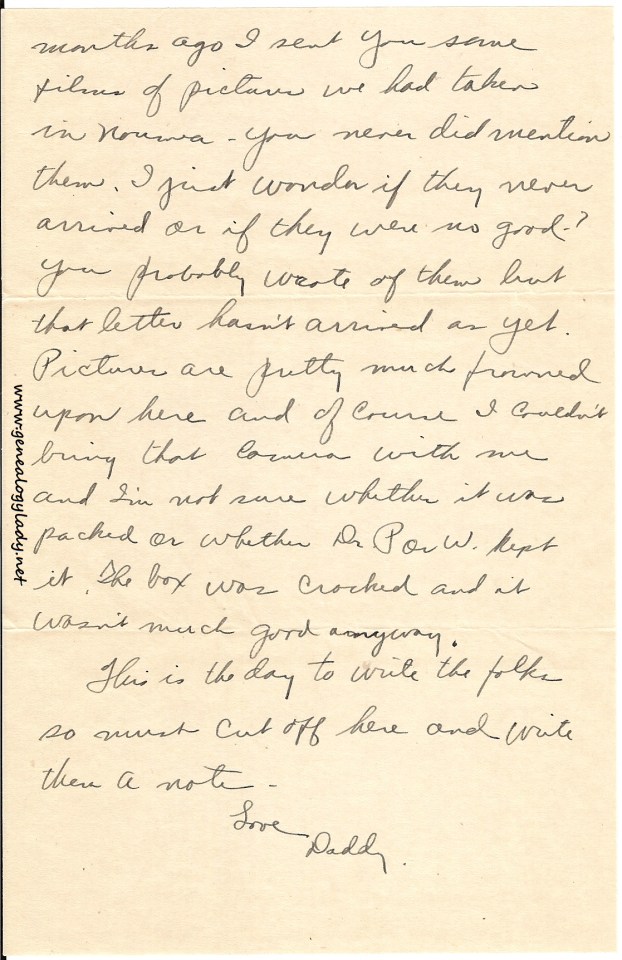 months ago I sent you some
films of pictures we had taken
in Noumea - you never did mention
them. I just wonder if they never
arrived or if they were no good-?
You probably wrote of them but
that letter hasn't arrived as yet.
Pictures are pretty much frowned
upon here and of course I couldn't
bring that camera with me
and I'm not sure whether it was
packed or whether Dr P or W. kept
it. The box was cracked and it
wasn't much good anyway.
This is the day to write the folks
so must cut off here and write
them a note -
Love
Daddy.
www.genealogylady.net